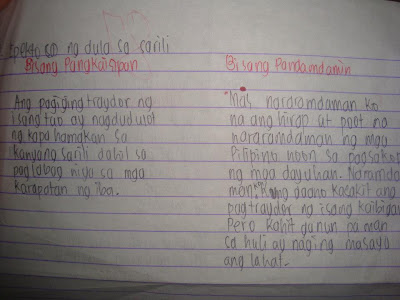 Epekto ng dula sa sarili
Bisang Pangkaisipan
Ang pagigingtraydor ng
isang tao ay nagdudulot
ng kapahamakan sa
kanyang sarili dahil sa
paglabag niya sa mga
karapatan ng iba.
Bisang Pandamdamin
Mas nararamdaman ko
na ang hirap at poot na
nararamdaman ng mga
Pilipino noon sa pagsakop
ng mga dayuhan. Naramda
man kung gaano kasakit ang
pagtraydor ng isang kaibigan
Pero kahit ganun pa man
sa huli ay naging masaya
ang lahat.